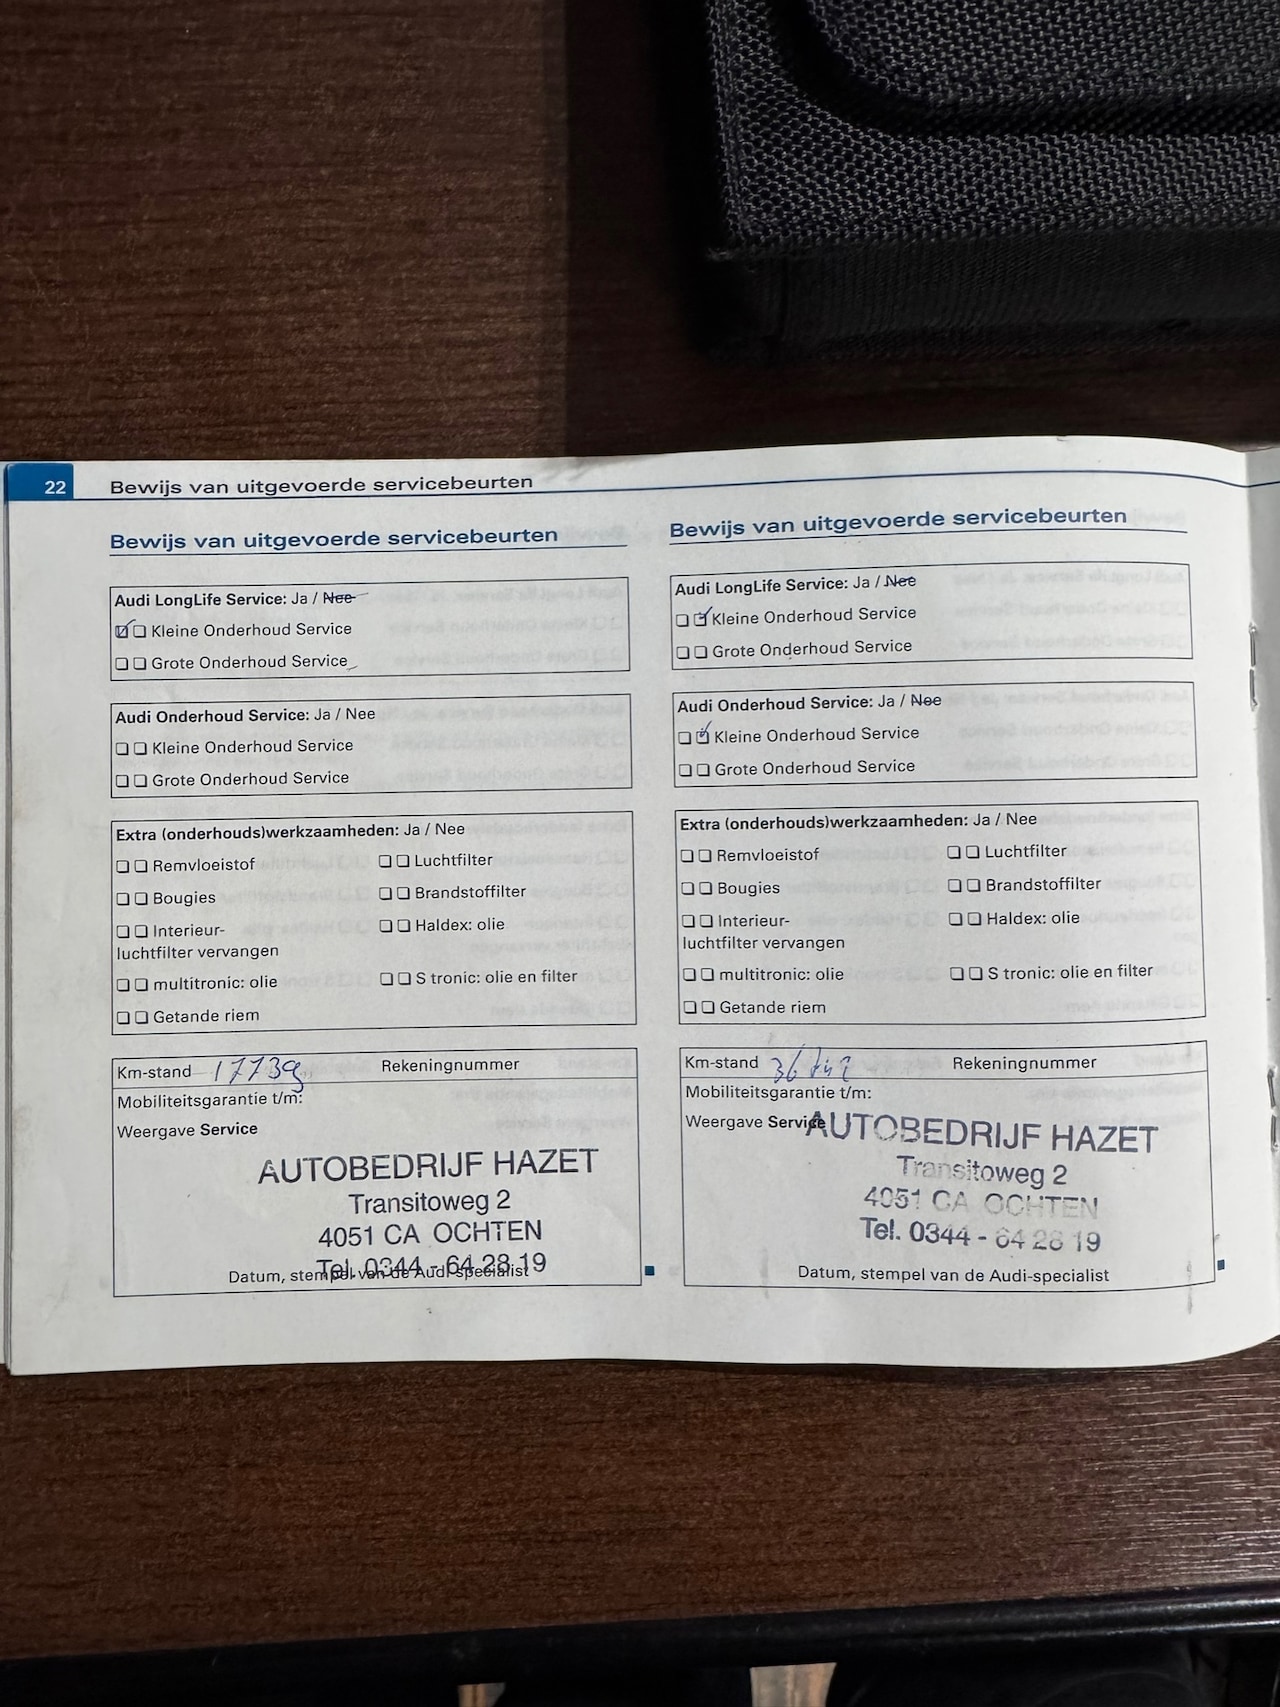 22
Bewijs van uitgevoerde servicebeurten
Bewijs van uitgevoerde servicebeurten
Audi LongLife Service: Ja / Nee
Kleine Onderhoud Service
Grote Onderhoud Service
Audi Onderhoud Service: Ja / Nee
Kleine Onderhoud Service
Grote Onderhoud Service
Extra (onderhouds)werkzaamheden: Ja / Nee
Remvloeistof
Luchtfilter
Bougies
Brandstoffilter
Interieur-
luchtfilter vervangen
Haldex: olie
multitronic: olie
S tronic: olie en filter
Getande riem
Km-stand 17739
Rekeningnummer
Mobiliteitsgarantie t/m:
Weergave Service
AUTOBEDRIJF HAZET
Transitoweg 2
4051 CA OCHTEN
Tel. 0344 - 64 28 19
Datum, stempel van de Audi-specialist
Bewijs van uitgevoerde servicebeurten
Audi LongLife Service: Ja / Nee
Kleine Onderhoud Service
Grote Onderhoud Service
Audi Onderhoud Service: Ja / Nee
Kleine Onderhoud Service
Grote Onderhoud Service
Extra (onderhouds)werkzaamheden: Ja / Nee
Remvloeistof
Luchtfilter
Bougies
Brandstoffilter
Interieur-
luchtfilter vervangen
Haldex: olie
multitronic: olie
S tronic: olie en filter
Getande riem
Km-stand
Rekeningnummer
Mobiliteitsgarantie t/m:
Weergave Service
AUTOBEDRIJF HAZET
Transitoweg 2
4051 CA OCHTEN
Tel. 0344 - 64 28 19
Datum, stempel van de Audi-specialist